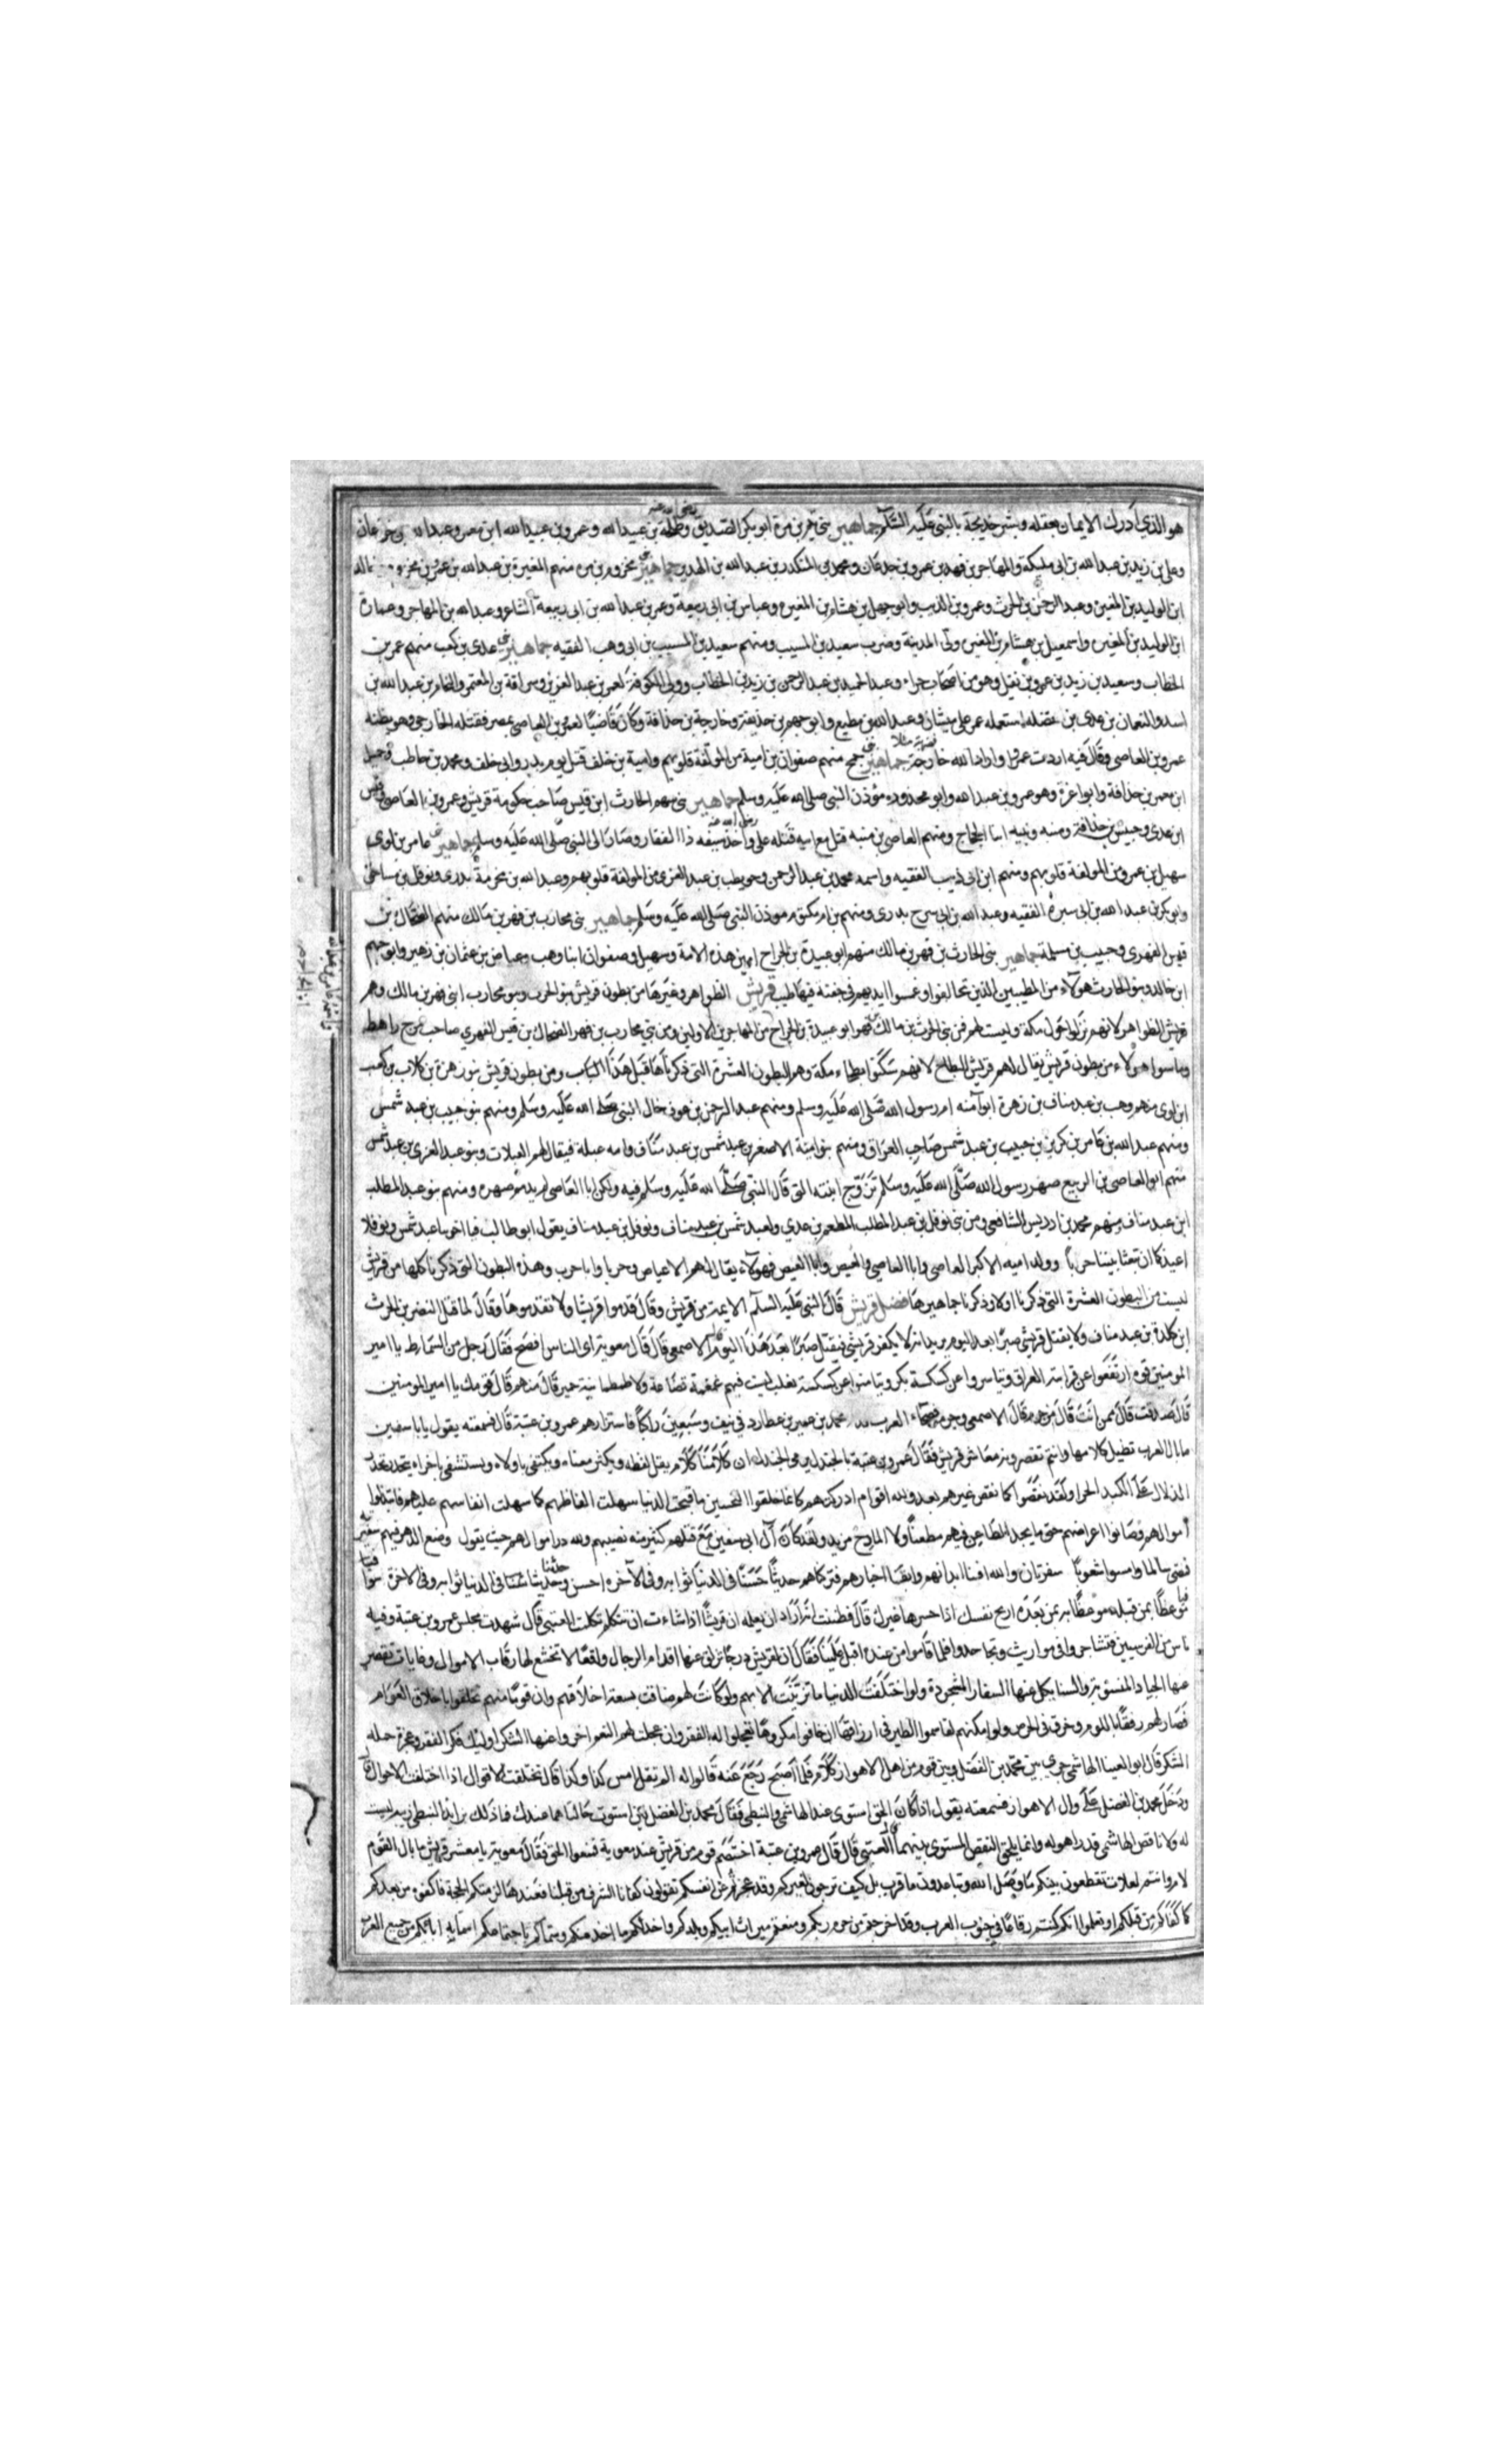 هو الذي ادرك الايمان بعقله وبشر خديجة بالنبى عليه السلام جماهير بنى تيم بن مرة ابو بكر الصديق رضى الله عنه وطلحة بن عبيد الله وعمرو بن عبيد الله ابن معمر وعبد الله بن جدعان
وعلى بن زيد بن عبد الله بن ابى مليكة والمهاجر بن فهد بن عمرو بن جدعان ومحمد بن المنكدر بن عبد الله بن الهدير جماهير بنى مخزوم بن مره منهم المغيرة بن عبد الله بن عمر بن مخزوم
ابن الوليد بن المغيره وعبد الرحمن بن الحرث وعمرو بن وابو جهل بن هشام بن المغيره وعياس بن ابى ربيعة وعمر بن عبد الله بن ابى ربيعة الشاعر وعبد الله بن المهاجر وعمارة
ابن الوليد بن المغيره واسمعيل بن هشام بن المغيره ولى المدينة وضرب سعيد بن المسيب ومنهم سعيد بن المسيب بن ابى وهب الفقيه جماهير بنى عدى بن كعب منهم عمر بن
الخطاب وسعيد بن زيد بن عمرو بن نفيل وهو من اصحاب حراء وعبد الحميد بن عبد الرحمن بن زيد بن الخطاب وولى الكوفة لعمر بن عبد العزيز وسراقة بن المعتمر والنحام بن عبد الله بن
اسد والنعمان بن عدى بن نضله استعمله عمر على ميشان وعبد الله بن مطيع وابو جهم بن حذيفة وخارجة بن حذافة وكان قاضيا لعمرو بن العاصى بمصر فقتله الخارجى وهو يظنه
عمرو بن العاصى وقال فيه اردت عمرا واراد الله خارجة جماهير بنى جمح منهم صفوان بن امية من المولفة قلوبهم وامية بن خلف قتل يوم بدر وابى خلف ومحمد بن حاطب وجميل
ابن معمر بن حذافة وابو عزة وهو عمرو بن عبد الله وابو محذوره مؤذن النبى صلى الله عليه وسلم جماهير بنى سهم الحارث ابن قيس صاحب حكومة قريش وعمرو بن العاصى وقيس
ابن عدى وحبيش بن حذافة ومنبه ونبيه ابنا الحجاج ومنهم العاصى بن منبه قتل مع ابيه قتله على رضى الله عنه واخذ سيفه ذا الفقار وصار الى النبى صلى الله عليه وسلم جماهير بنى عامر بن لوى
سهيل بن عمرو من المولفة قلوبهم ومنهم ابن ابى ذيب الفقيه واسمه محمد بن عبد الرحمن وحويطب بن عبد العزى من المولفة قلوبهم وعبد الله بن مخرمة بدرى ونوفل بن مساحق
وابو بكر بن عبد الله بن ابى سبره الفقيه وعبد الله بن ابى سرح بدرى ومنهم بن ام مكتوم موذن النبى صلى الله عليه وسلم جماهير بنى محارب بن فهر بن مالك منهم الضحاك بن
قيس الفهرى وحبيب بن مسلمة جماهير بنى الحارث بن فهر بن مالك منهم ابو عبيدة بن الجراح امين هذه الامة وسهيل وصفوان ابنا وهب وعياض بن عثمان بن زهير وابو جهم
ابن خالد وبنو الحارث هولآء من المطيبين الذين تحالفوا وغمسوا ايديهم فى جفنه فيها طيب قريش الظواهر وغيرها من بطون قريش بنو الحرث وبنو محارب ابنى فهر بن مالك وهم
قريش الظواهر لانهم نزلوا حول مكة وليست لهم فمن بنى الحرث بن مالك بن فهر ابو عبيدة بن الجراح من المهاجرين الاولين ومن بنى محارب بن فهر الضحاك بن قيس الفهرى صاحب مرج راهط
وما سوا هولاء من بطون قريش يقال لهم قريش البطاح لانهم سكنوا بطحاء مكة وهم البطون العشرة التى ذكرناها قبل هذا الكتاب ومن بطون قريش بنو زهرة بن كلاب بن كعب
ابن لوى منهم وهب بن عبد مناف بن زهرة ابو آمنه ام رسول الله صلى الله عليه وسلم ومنهم عبد الرحمن بن عوف خال النبى صلى الله عليه وسلم ومنهم بنو حبيب بن عبد شمس
ومنهم عبد الله بن عامر بن كريز بن حبيب بن عبد شمس صاحب العراق ومنهم بنو امية الاصغر بن عبد شمس بن عبد مناف وامه عبلة فيقال لهم العبلات وبنو عبد العزى بن عبد شمس
منهم ابو العاصى بن الربيع صهر رسول الله صلى الله عليه وسلم تزوج ابنته التى قال النبى صلى الله عليه وسلم فيه ولكن ابا العاصى لم يذمم صهره ومنهم بنو عبد المطلب
ابن عبد مناف منهم محمد بن ادريس الشافعى ومن بنى نوفل بن عبد المطلب المطعم بن عدي ولعبد شمس بن عبد مناف ونوفل بن عبد مناف يقول ابو طالب فيا اخوينا عبد شمس ونوفلا
اعيذكما ان تبعثا بيننا حربا وولد اميه الاكبر العاصى وابا العاصى والعيص وابا العيص فهولآء يقال لهم الاعياص وحربا وابا حرب وهذه البطون التى ذكرناها كلها من قريش
ليست من البطون العشرة التى ذكرنا اولا وذكرنا جماهيرها فضل قريش قال النبى عليه السلام الايمة من قريش وقال قدموا قريشا ولا تقدموها وقال لما قتل النضر بن الحرث
ابن كلدة بن عبد مناف ولا يقتل قريشى صبرا بعد اليوم يريد انه لا يكفر قريشى فيقتل صبرا بعد هذا اليوم الاصمعى قال قال معوية اى الناس افصح فقال رجل من السماط يا امير
المومنين قوم ارتفعوا عن فراتية العراق وتياسروا عن كسكسة بكر وتيامنوا عن كشكشة تغلب ليست فيهم غمغمة قضاعة ولا طمطمانية حمير قال من هم قال قومك يا امير المومنين
قال صدقت قال ممن انت قال من جرم قال الاصمعى وجرم فصحاء العرب محمد بن عمير بن عطارد فى نيف وسبعين راكبا فاستزارهم عمرو بن عتبة قال فسمعته يقول يابا سفين
ما بال العرب تطيل كلامها وانتم تقصرونه معاشر قريش فقال عمرو بن عتبة بالجندل يرمى الجندل ان كلامنا كلام يقل لفظه ويكثر معناه ويكتفى باولاه ويستشفى باخراه يتحدر تحدر
الزلال على الكبد الحرا ولقد نقصوا كما نقص غيرهم بعد والله اقوام ادركتهم كانما خلقوا لتحسين ما قبحت الدنيا سهلت الفاظهم كما سهلت انفاسهم عليهم فابتذلوا
اموالهم وصانوا اعراضهم حتى ما يجد الطاعن فيهم مطعنا ولا المادح مزيد ولقد كان آل ابى سفين مع قلتهم كثير منه نصيبهم ولله در مولاهم حيث يقول وضع الدهر فيهم شفرتيه
فمضى سالما وامسوا شعوبا سفرتان والله افنتا ابدانهم وابقتا اخبارهم فتركاهم حديثا حسنا فى الدنيا ثوابه وفى الآخره احسن وحديثا سيئا فى الدنيا ثوابه وفى الاخرة سوا
موعظا بمن قبله موعظا به من بعده اربح نفسك اذا خسرها غيرك قال فظننت انه اراد ان يعلمه ان قريشا اذا شاءت ان تتكلم تكلمت العتبى قال شهدت مجلس عمرو بن عتبة وفيه
ناس من القرشيين فتشاجروا فى مواريث وتجاحدوا فلما قاموا من عنده اقبل علينا فقال ان لقريش درجا تزلق عنها اقدام الرجال وافعالا تخشع لها رقاب الاموال وغايات تقصر
عنها الجياد المنسوبة والسنا يكل عنها الشفار المشحوذة ولو اختلفت الدنيا ما تزينت الا بهم ولو كانت لهم ضاقت بسعة اخلاقهم وان قوما منهم تخلقوا باخلاق العوام
فصار لهم رفقا باللوم وخرق فى الحرص ولو امكنهم لقاسموا الطير فى ارزاقها ان خافوا مكروها تعجلوا له الفقر وان عجلت لهم النعم اخروا عنها الشكر اوليك فكر الفقر وعجزة حملة
الشكر قال ابو العينا الهاشمى جرى بين محمد بن الفضل وبين قوم من اهل الاهواز كلام فلما اصبح رجع عنه قالوا له الم تقل امس كذا وكذا قال تختلف الاقوال اذا اختلفت الاحوال
ودخل محمد بن الفضل على وال الاهواز فسمعته يقول اذا كان الحق استوى عندى الهاشمى والنبطى فقال محمد بن الفضل لين استوت حالتاهما عندك فما ذلك بزايد النبطى زينة ليست
له ولا ناقص الهاشمى قدرا هو له وانما يلحق النقص المستوى بينهما العتبى قال قال عمرو بن عتبة اختصم قوم من قريش عند معوية فمنعوا الحق فقال معوية يا معشر قريش ما بال القوم
لام وانتم لعلات تقطعون بينكم ما وصل الله وتباعدون ما قرب بل كيف ترجون لغيركم وقد عجزتم عن انفسكم تقولون كفانا الشرف من قبلنا فعندها لزمتكم الحجة فاكفوه من بعدكم
كما كفاكم من قبلكم او تعلموا انكم كنتم رقاعا فى جنوب العرب وقد اخرجتم من حرم ربكم ومنعتم ميراث ابيكم وبلدكم واخذ لكم ما اخذ منكم وسماكم باجتماعكم اسما به ابانكم من جميع العرب